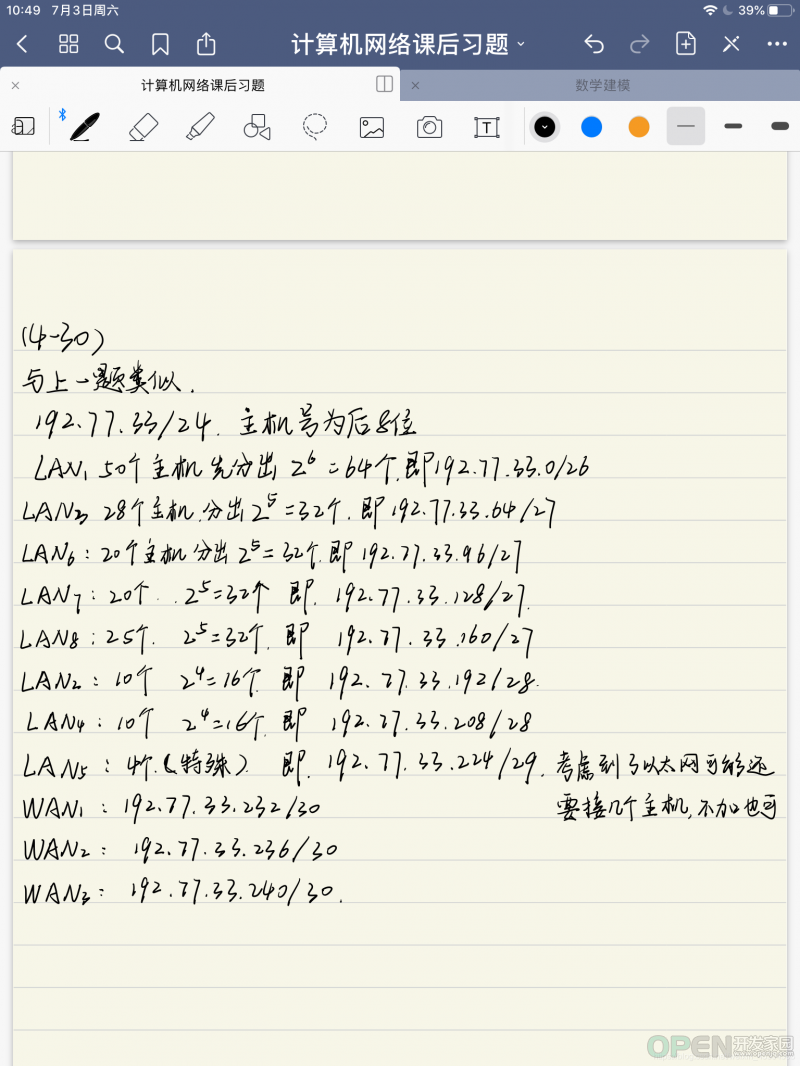 10:49 7月3日周六 39%
计算机网络课后习题
计算机网络课后习题
数学建模
T
(4-30)
与上一题类似.
192.77.33/24. 主机号为后8位
LAN1 50个主机 先分出 2^6 = 64个,即192.77.33.0/26
LAN3 28个主机,分出2^5=32个,即192.77.33.64/27
LAN6:20个主机 分出2^5=32个,即 192.77.33.96/27
LAN7:20个. 2^5=32个 即. 192.77.33.128/27.
LAN8:25个. 2^5=32个,即 192.77.33.160/27
LAN2:10个 2^4=16个. 即 192.77.33.192/28.
LAN4:10个 2^4=16个,即 192.77.33.208/28
LAN5:4个.(特殊) 即. 192.77.33.224/29. 考虑到了以太网可能还
WAN1:192.77.33.232/30 要接几个主机,不加也可
WAN2:192.77.33.236/30
WAN3:192.77.33.240/30.
OPEN开发家园